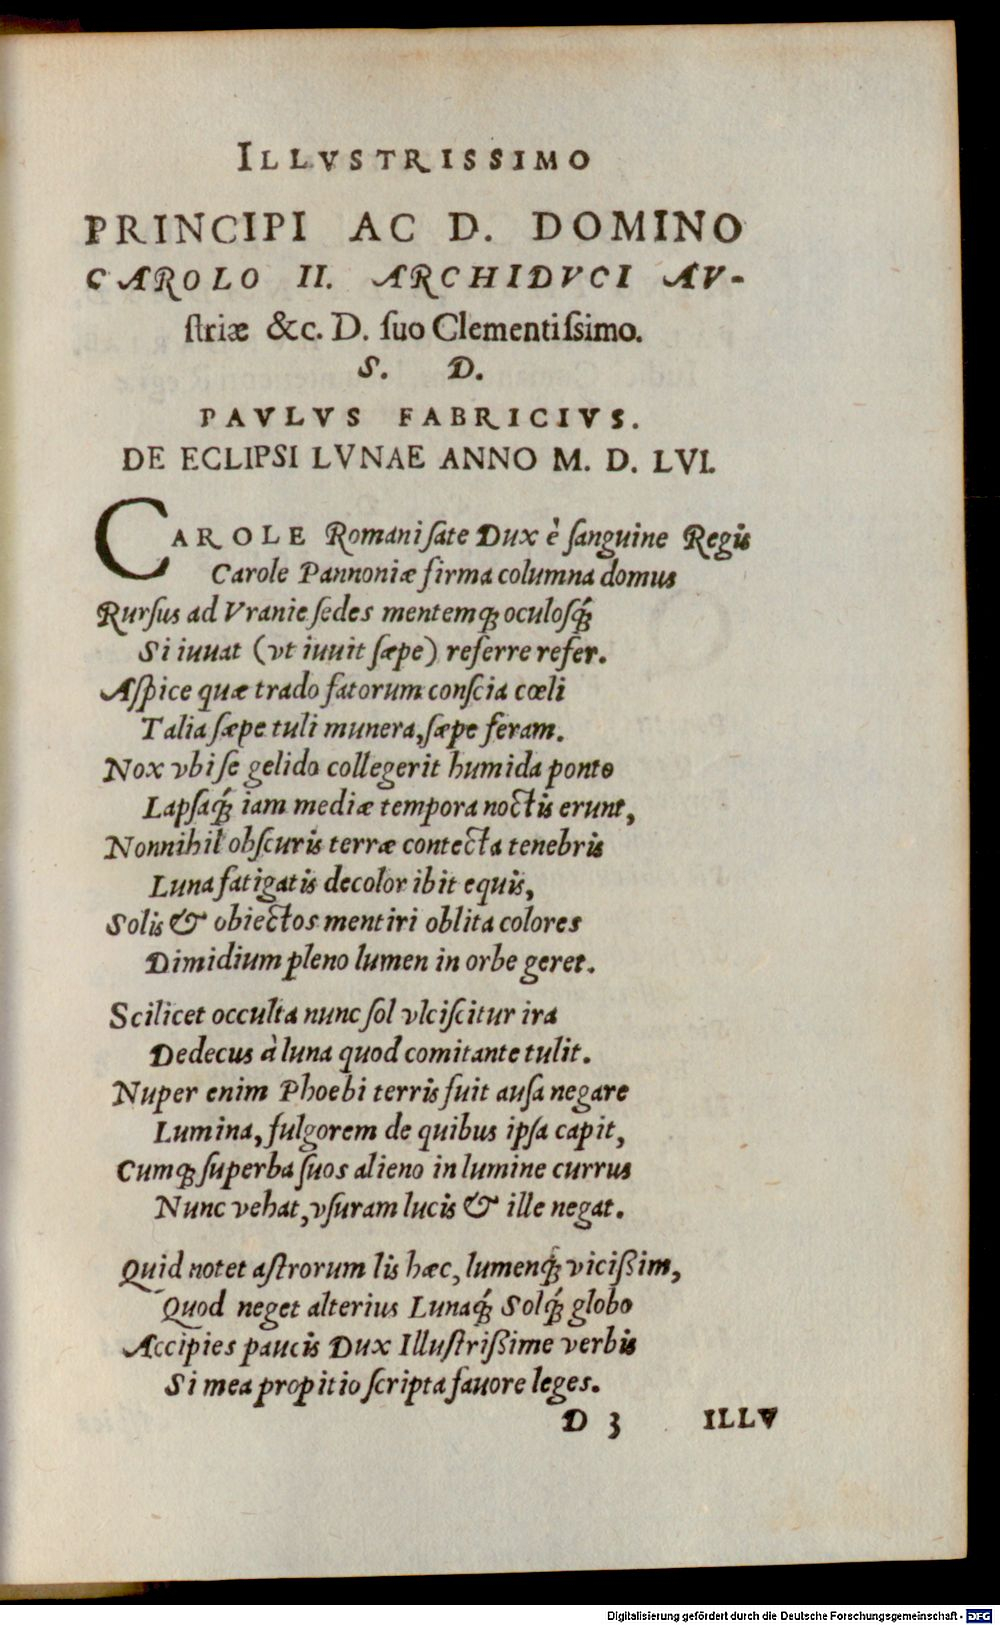 ILLVSTRISSIMO
PRINCIPI AC D. DOMINO
CAROLO II. ARCHIDVCI AV-
ſtriæ &c. D. ſuo Clementiſsimo.
S. D.
PAVLVS FABRICIVS.
DE ECLIPSI LVNAE ANNO M. D. LVI.
CAROLE Romani ſate Dux è ſanguine Regis
Carole Pannoniæ firma columna domus
Rurſus ad Vranie ſedes mentemq́; oculoſq́;
Si iuuat (vt iuuit ſæpe) referre refer.
Aſpice quæ trado fatorum conſcia cœli
Talia ſæpe tuli munera, ſæpe feram.
Nox vbi ſe gelido collegerit humida ponto
Lapſaq́; iam mediæ tempora noctis erunt,
Nonnihil obſcuris terræ contecta tenebris
Luna fatigatis decolor ibit equis,
Solis & obiectos mentiri oblita colores
Dimidium pleno lumen in orbe geret.
Scilicet occulta nunc ſol vlciſcitur ira
Dedecus à luna quod comitante tulit.
Nuper enim Phoebi terris fuit auſa negare
Lumina, fulgorem de quibus ipſa capit,
Cumq; ſuperba ſuos alieno in lumine currus
Nunc vehat, vſuram lucis & ille negat.
Quid notet aſtrorum lis hæc, lumenq́; vicißim,
Quod neget alterius Lunaq́; Solq́; globo
Accipies paucis Dux Illuſtrißime verbis
Si mea propitio ſcripta fauore leges.
D 3 ILLV
Digitalisierung gefördert durch die Deutsche Forschungsgemeinschaft - DFG